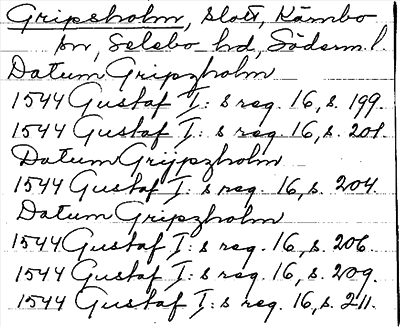 Gripsholm, slott, Kärnbo
sn, Selebo hd, Söderm.l.
Datum Gripzholm
1544 Gustaf I:s reg. 16, s. 199.
1544 Gustaf I:s reg. 16, s. 201.
Datum Grijpzholm
1544 Gustaf I:s reg. 16, s. 204.
Datum Gripzholm
1544 Gustaf I:s reg. 16, s. 206.
1544 Gustaf I:s reg. 16, s. 209.
1544 Gustaf I:s reg. 16, s. 211.